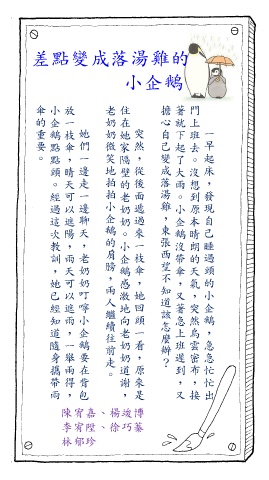 差點變成落湯雞的
小企鵝
一早起床，發現自己睡過頭的小企鵝，急急忙忙出
門上班去。沒想到原本晴朗的天氣，突然烏雲密布，接
著就下起了大雨。小企鵝沒帶傘，又著急上班遲到，又
擔心自己變成落湯雞，東張西望不知道該怎麼辦？
突然，從後面遞過來一枝傘，她回頭一看，原來是
住在她家隔壁的老奶奶。小企鵝感激地向老奶奶道謝，
老奶奶微笑地拍拍小企鵝的肩膀，兩人繼續往前走。
她們一邊走一邊聊天，老奶奶叮嚀小企鵝要在背包
放一枝傘，晴天可以遮陽，雨天可以遮雨，一舉兩得，
小企鵝點點頭。經過這次教訓，她已經知道隨身攜帶雨
傘的重要。
陳宥嘉、楊竣博
李宥陞、徐巧蓁
林郁珍